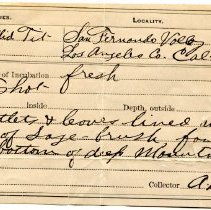 LOCALITY.
Tit San Fernando Valley
Los Angeles Co. Cal
of Incubation fresh
Shot
Inside Depth, outside
& leaves lined
of Sage-brush
bottom of deep Mountain
Collector